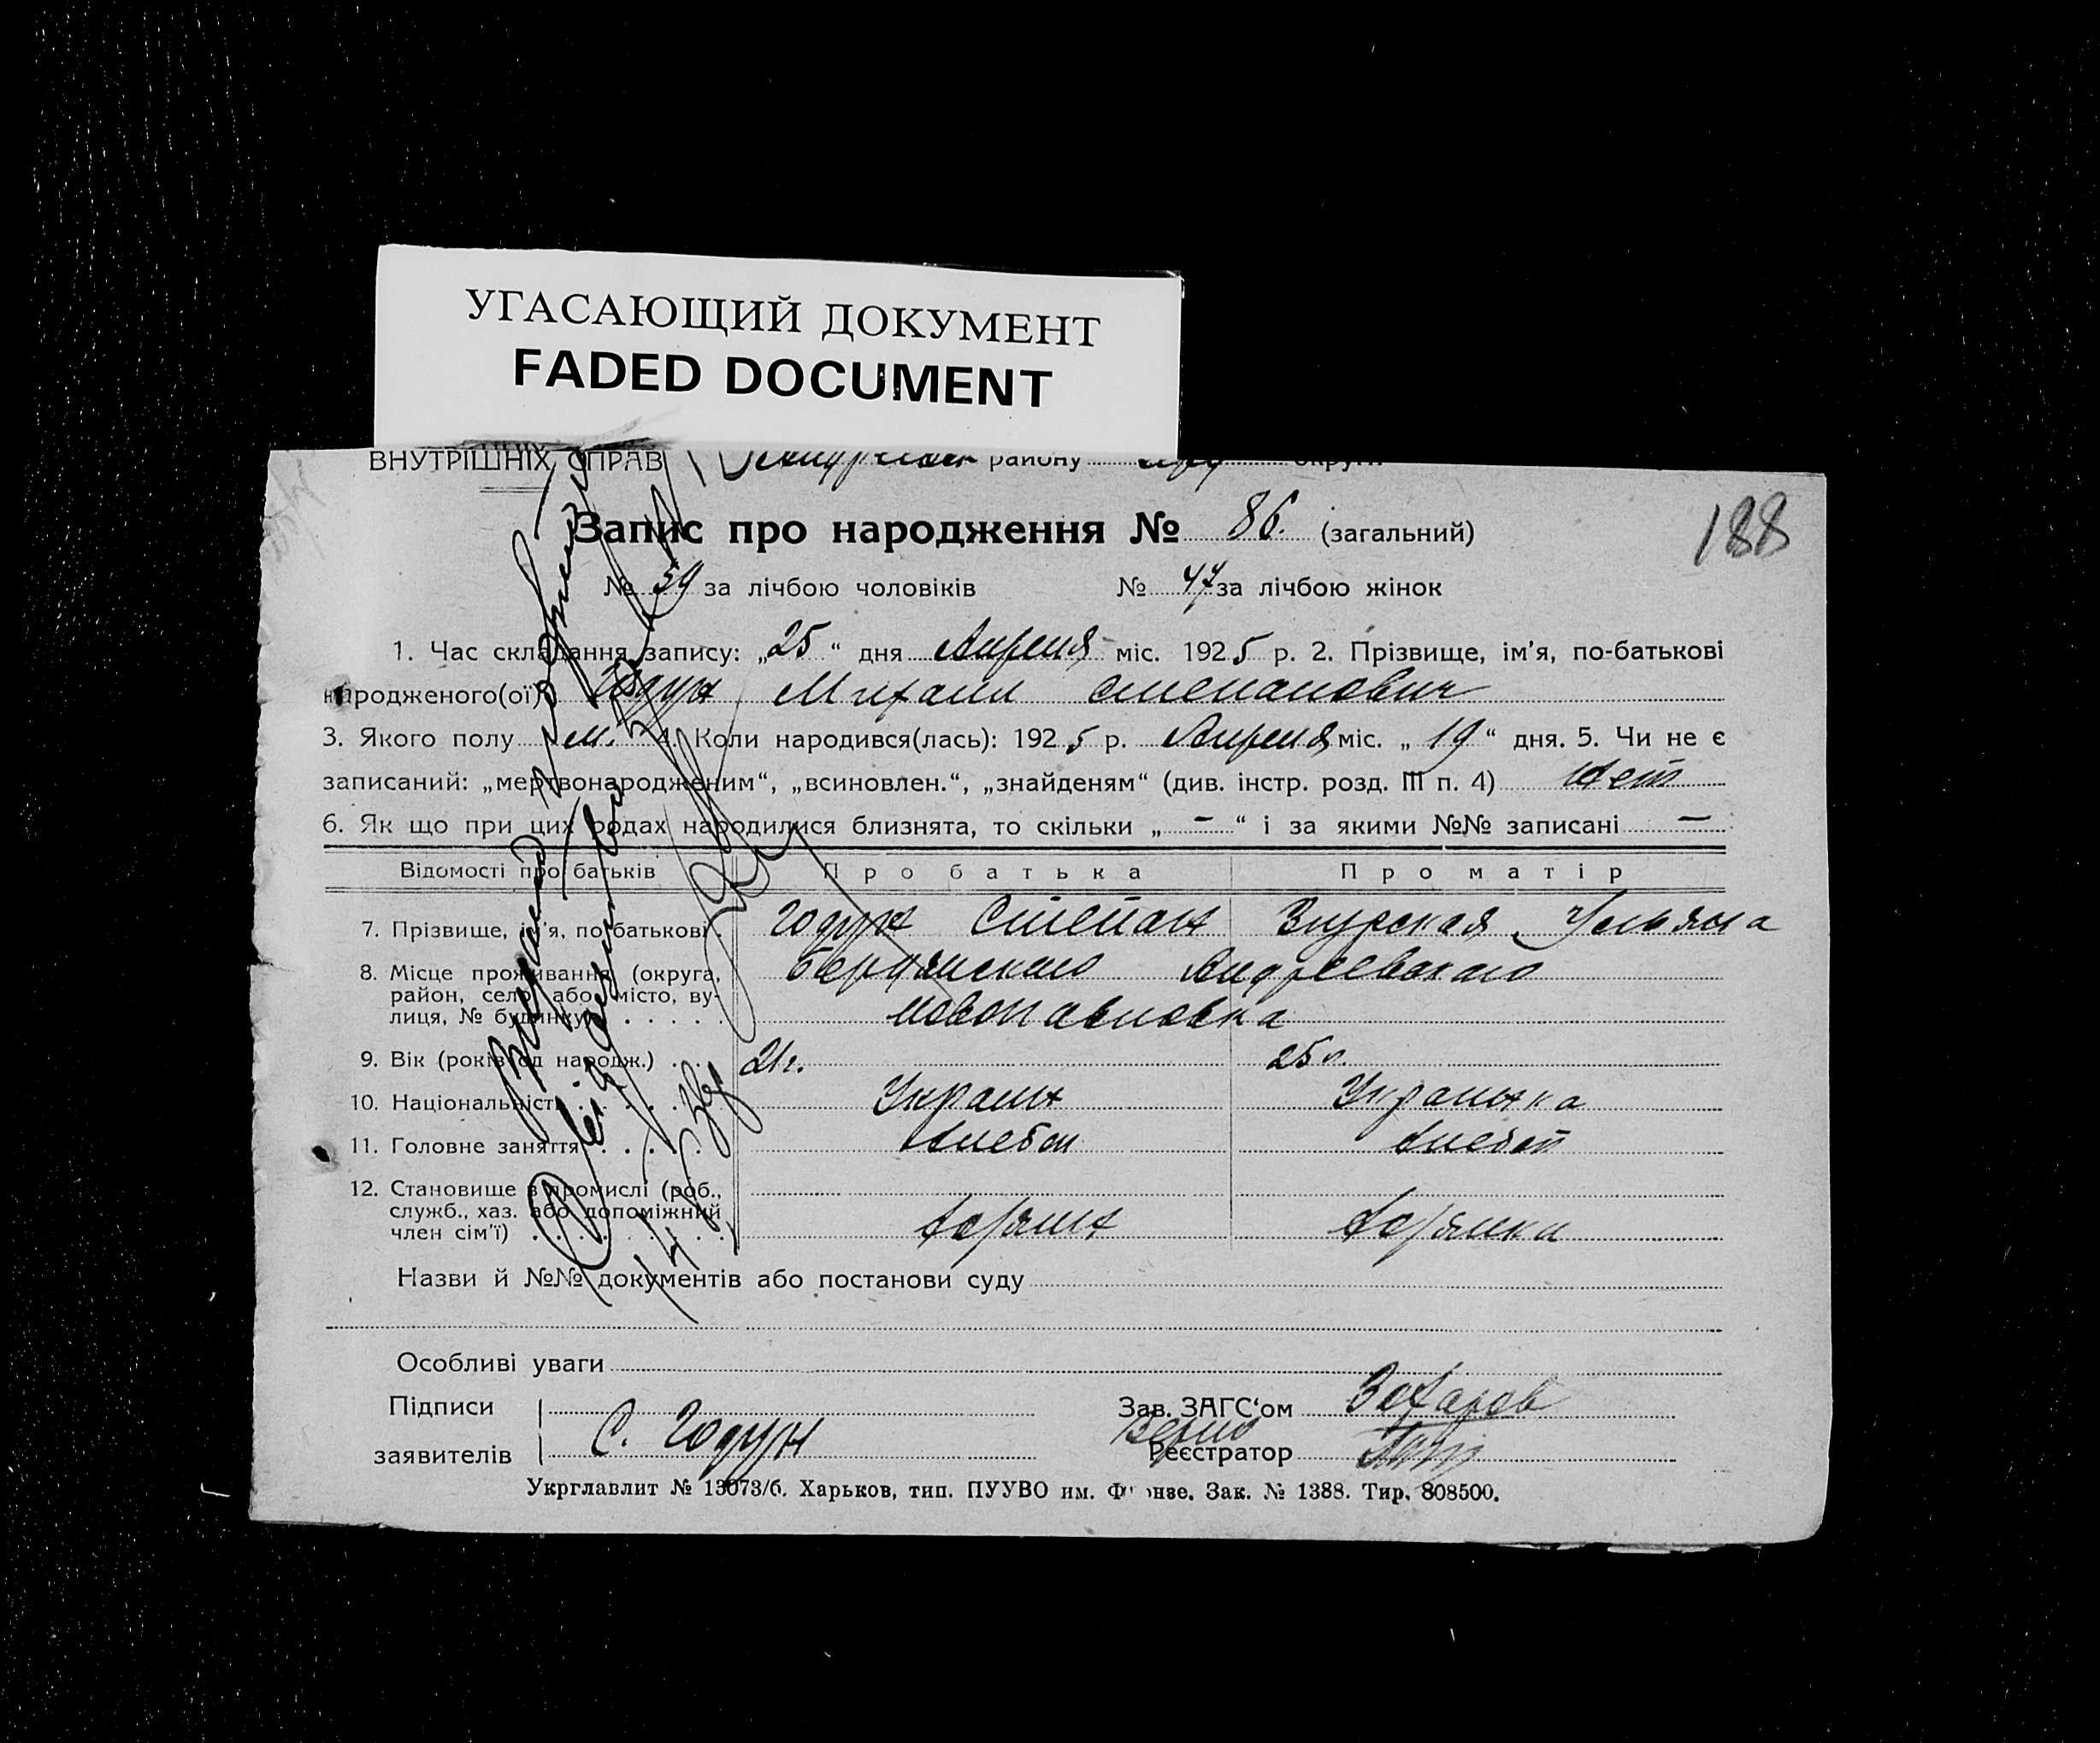 УГАСАЮЩИЙ ДОКУМЕНТ
FADED DOCUMENT
ВНУТРІШНІХ СПРАВ району округи
Запис про народження № 86. (загальний)
188
№ 39 за лічбою чоловіків № 47 за лічбою жінок
1. Час складання запису: „25“ дня Апреля міс. 1925 р. 2. Прізвище, ім’я, по-батькові
народженого(ої) Годун Михаил Степанович
3. Якого полу м. 4. Коли народився(лась): 1925 р. Апреля міс. „19“ дня. 5. Чи не є
записаний: „мертвонародженим“, „всиновлен.“, „знайденям“ (див. інстр. розд. III п. 4) Нет
6. Як що при цих родах народилися близнята, то скільки „ — “ і за якими №№ записані —
Відомості про батьків Про батька Про матір
7. Прізвище, ім’я, по батькові. Годун Степан Ульяна
8. Місце проживання (округа, Бердянского Андреевского
район, село або місто, ву-
лиця, № будинку) . . . . . Новопавловка
9. Вік (років од народж.) . . . 21 г. 25 л.
10. Національність . . . . . Украин Украинка
11. Головне заняття . . . . . хлебоп хлебоп
12. Становище в промислі (роб.,
служб., хаз. або допоміжний
член сім’ї) . . . . . . . . хозяин хозяйка
Назви й №№ документів або постанови суду
Особливі уваги
Підписи Зав. ЗАГС‘ом Захаров
заявителів С. Годун Реєстратор
Верно
Укрглавлит № 13073/б. Харьков, тип. ПУУВО им. Фрунзе. Зак. № 1388. Тир. 808500.